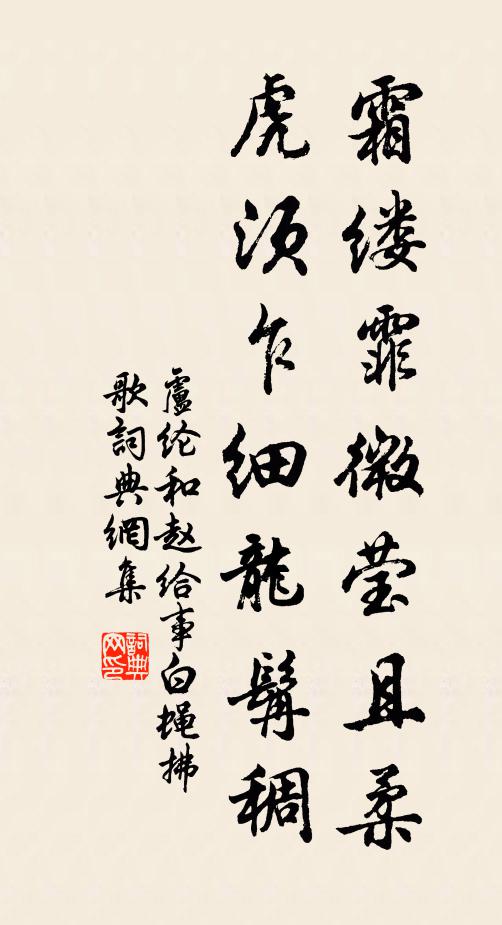 霜缕霏微莹且柔
虎须乍细龙髯稠
卢纶和赵给事白蝇拂
歌词典网集
词典网印